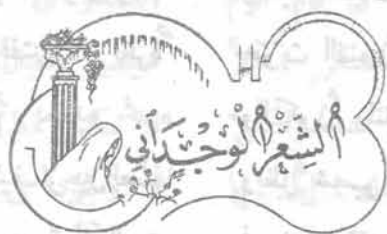 الشِّعْرُ الوِجْدَانِي